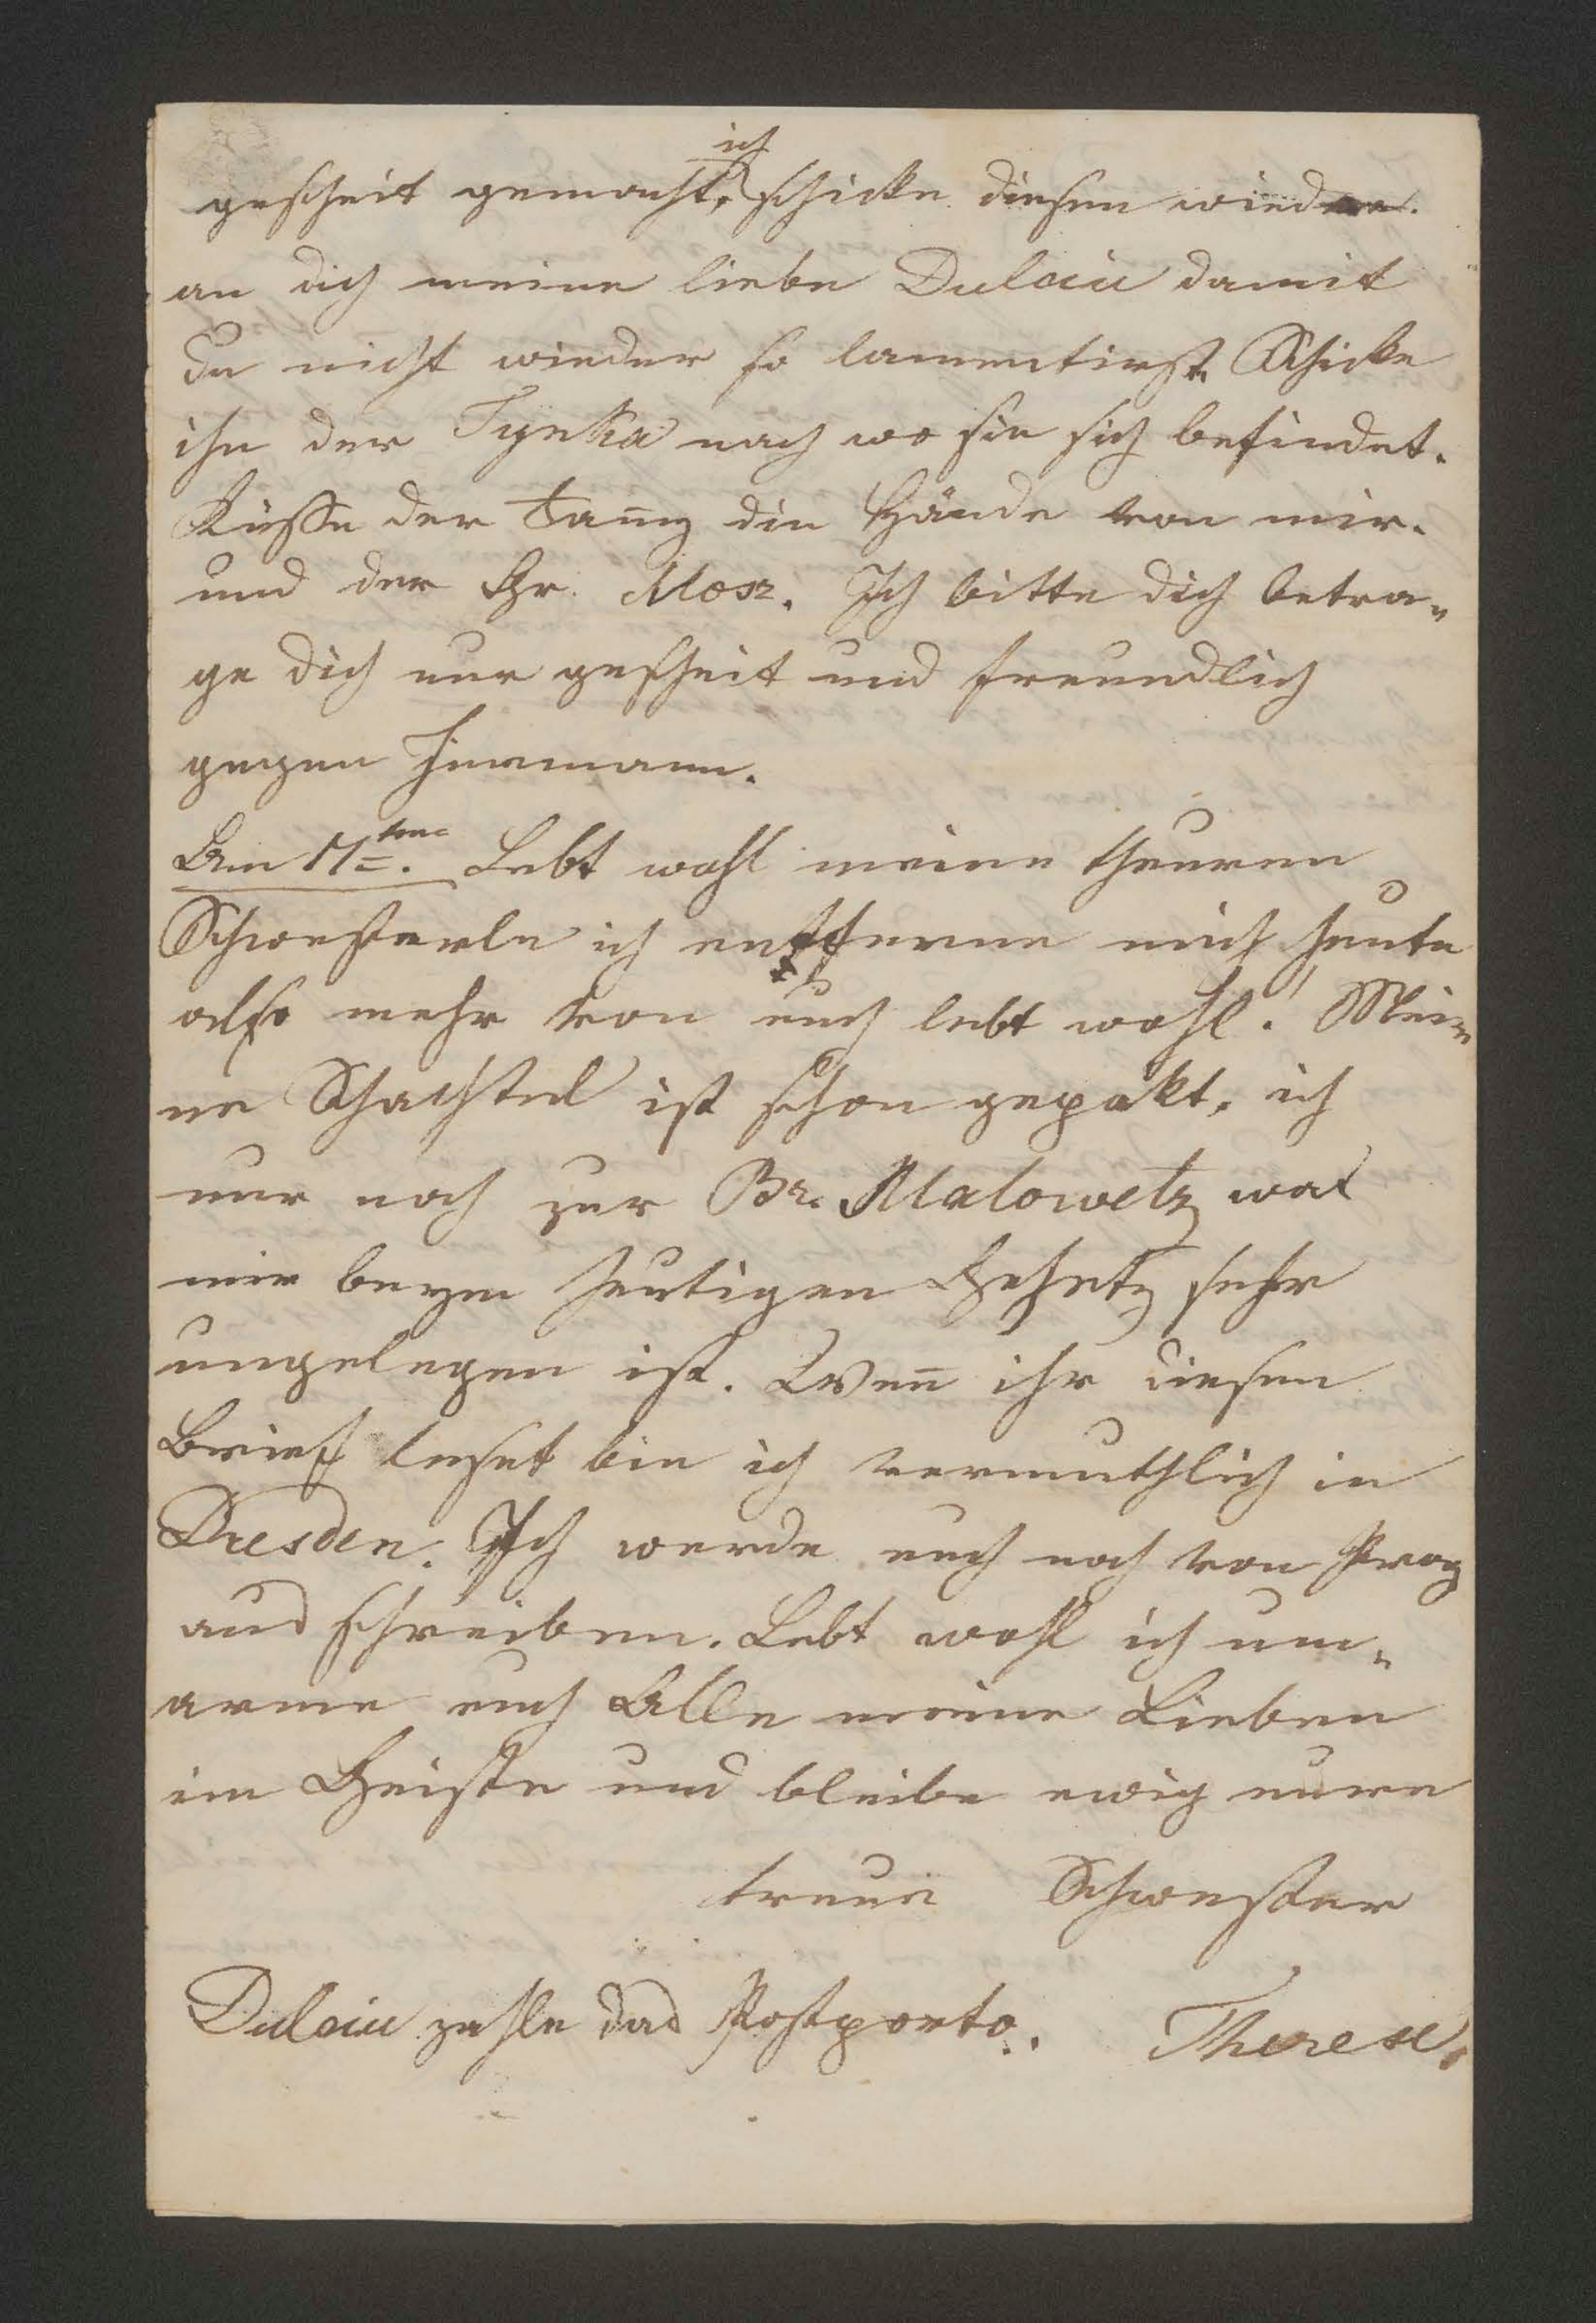 ich
gescheit gemacht, schicke diesen wieder
an dich meine liebe Dulcin damit
du nicht wieder so lamentirst. Schicke
ihn der Tynka nach wo sie sich befindet.
Küsse der Tang die Hände von mir.
und der Gr. Mosz. Ich bitte dich betra„
ge dich nur gescheit und freundlich
gegen Hermann.
Am 17ten. Lebt wohl meine theuren
Schwesterln ich entferne mich heute
also mehr von euch lebt wohl! Mei„
ne Schachtel ist schon gepakt, ich
nur noch zur Br. Malowetz was
mir beym heutigen Gehetz sehr
ungelegen ist. Weñ ihr diesen
Brief leset bin ich vermuthlich in
Dresden. Ich werde euch noch von Prag
aus schreiben. Lebt wohl ich um„
arme euch Alle meine Lieben
im Geiste und bleibe ewig eure
treue Schwester
Dulcin zahle das Postporto. Therese.